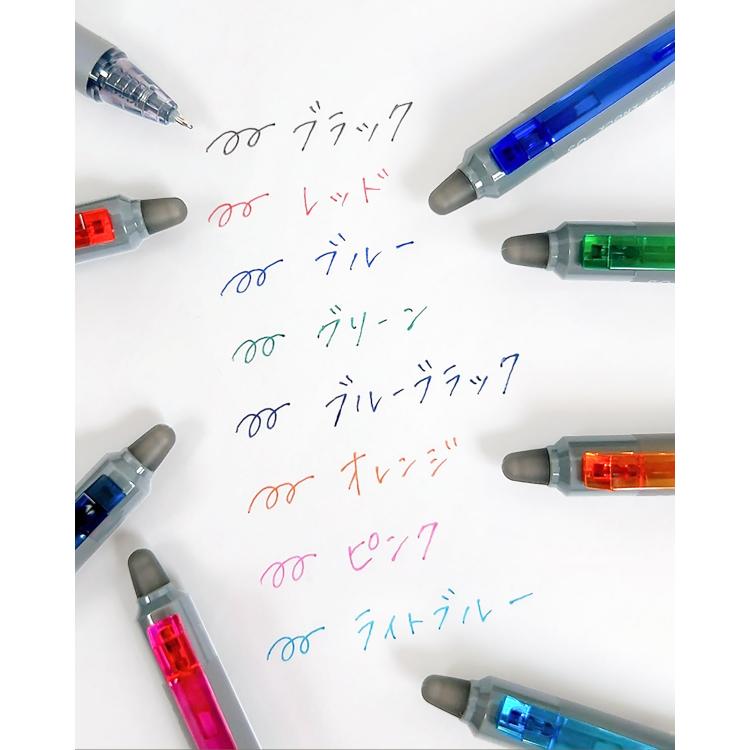 ブラック
レッド
ブルー
グリーン
ブルーブラック
オレンジ
ピンク
ライトブルー